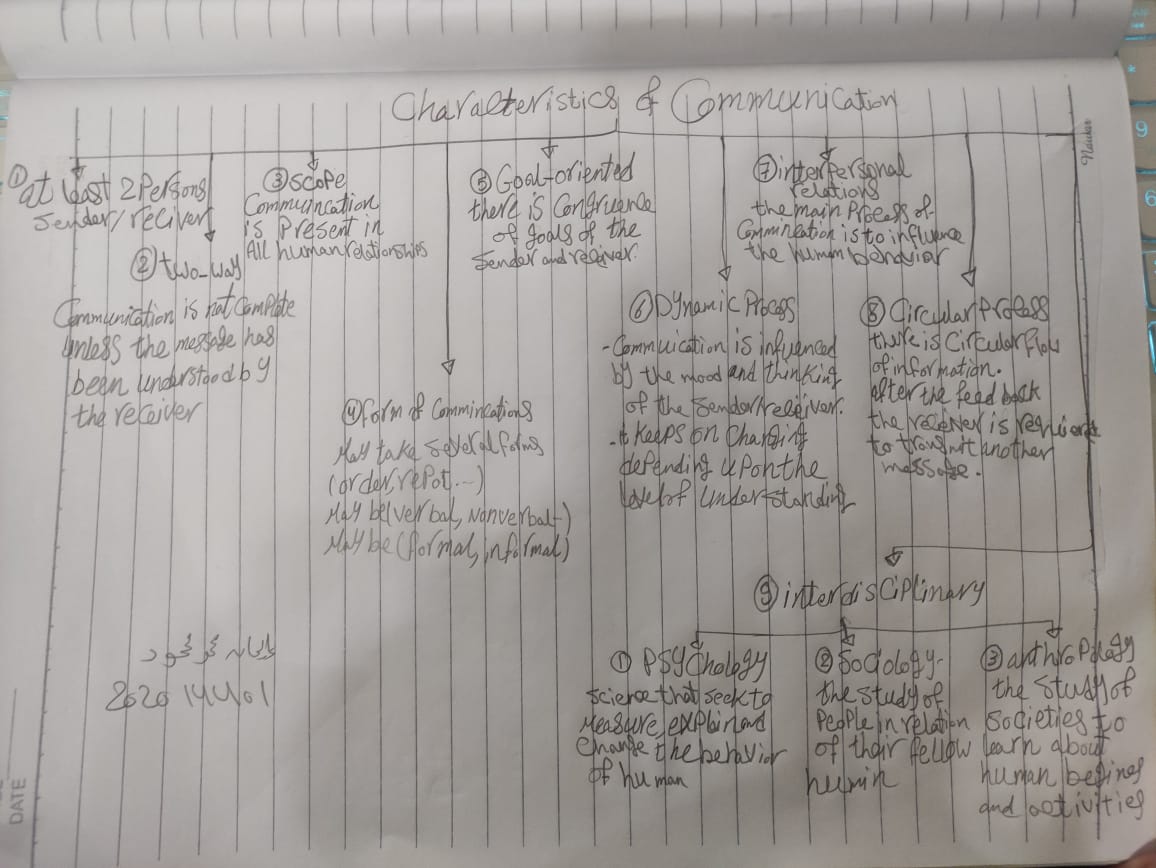 Characteristics of Communication
① at least 2 Persons
Sender/reciver
② two-way
Communication is not Complete
unless the message has
been understood by
the receiver
③ scope
Communication
is Present in
All human relationships
④ form of Commincations
May take several forms
(order, repot...)
May be (verbal, nonverbal)
May be (formal, informal)
⑤ Goal-oriented
there is Congruence
of goals of the
Sender and receiver.
⑥ Dynamic Process
- Commuication is infuenced
by the mood and thinking
of the Sender/receiver.
- it Keeps on Changing
depending upon the
level of Understanding
⑦ interpersonal
relations
the main Process of
Commincation is to influence
the human behavior
⑧ Circular Process
there is Circular flow
of information.
after the feed back
the receiver is required
to transmit another
message.
⑨ interdisciplinary
① PSYchology
science that seek to
Measure, explain and
Change the behavior
of human
② Sociology-
the study of
People in relation
of their fellow
humin
③ anthropology
the study of
societies to
learn about
human begines
and activities
محمود
2020
DATE
Navkar
9
6